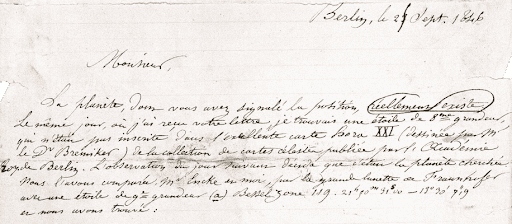 Berlin, le 25 Sept. 1846
Monsieur,
La planète, dont vous avez signalé la position, réellement existe.
Le même jour, où j'ai reçu votre lettre, je trouvais une étoile de 8me grandeur,
qui n'était pas inscrite dans l'excellente carte Hora XXI. (dessinée par Mr
le Dr Bremiker) de la collection de cartes célestes publiée par l'Académie
royale de Berlin. L'observation du jour suivant décida que c'était la planète cherchée.
Nous l'avons comparée, Mr Encke et moi, par la grande lunette de Fraunhofer
avec une étoile de 9e grandeur (a) Bessel Zone 119. 21h 50m
et nous avons trouvé: